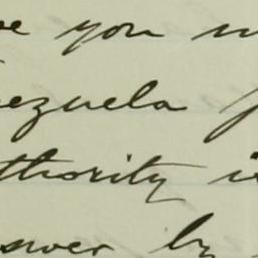 you
ezuela
thority
swer by